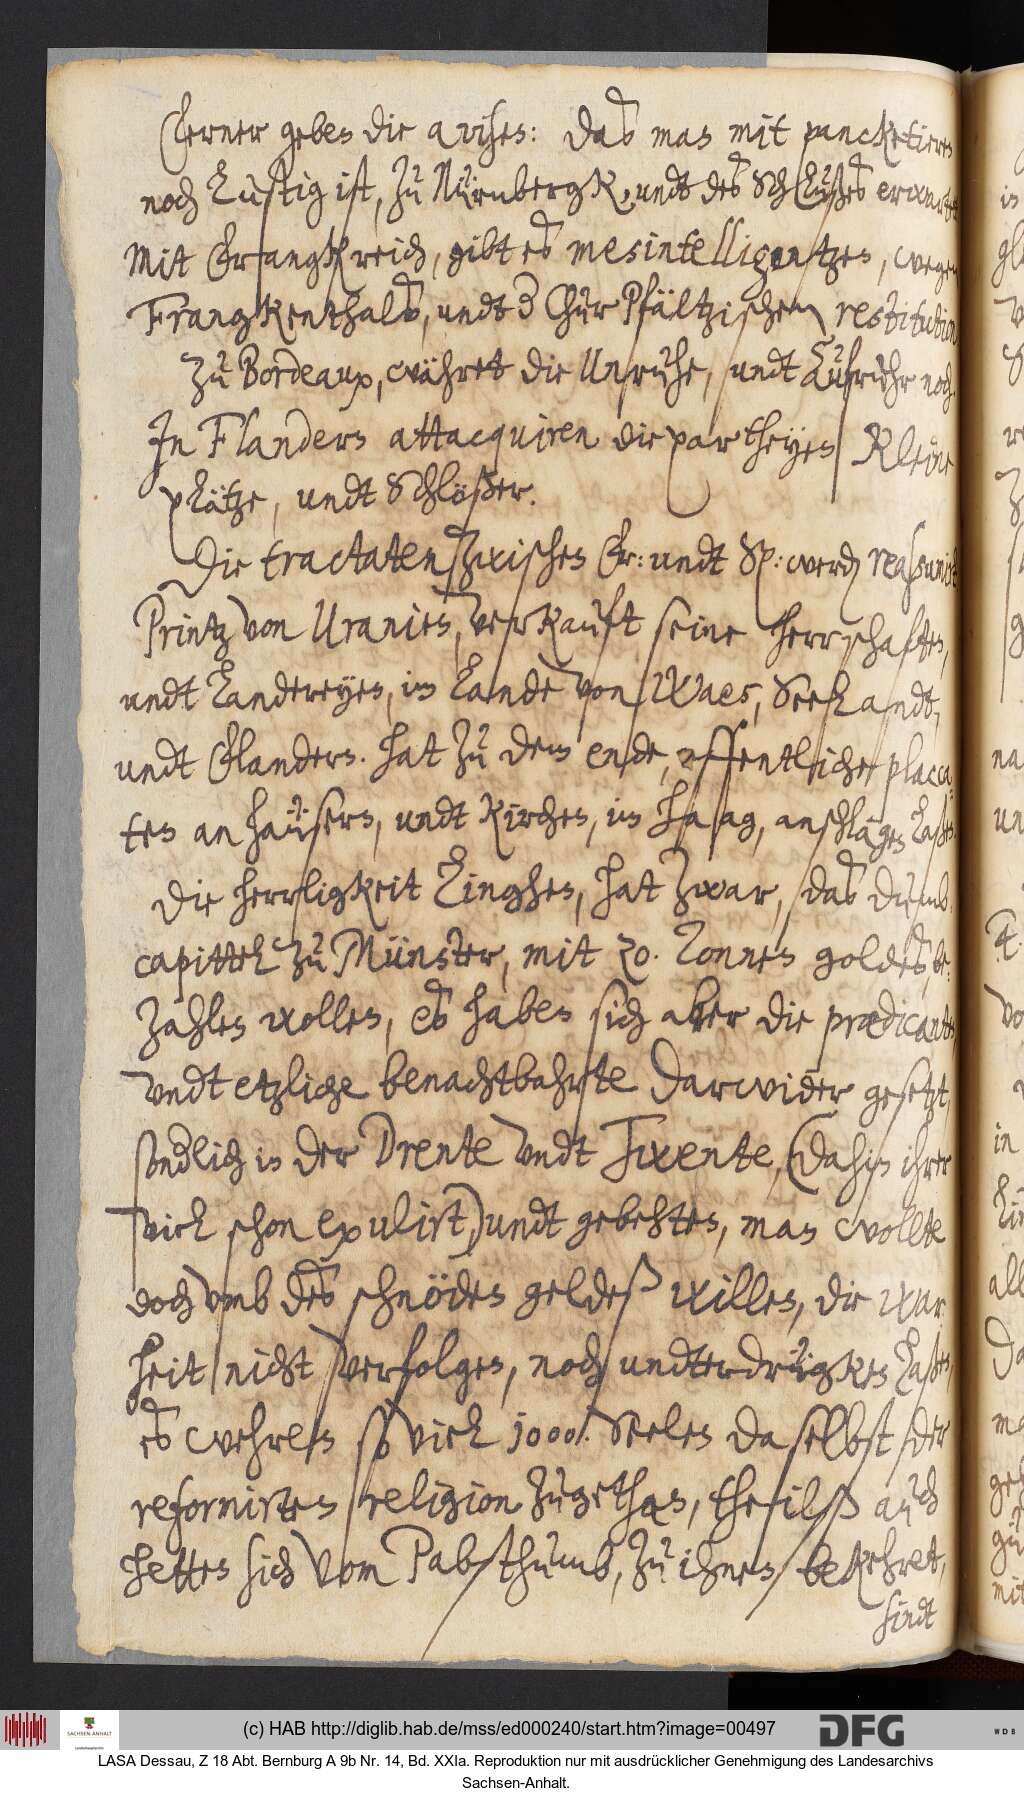 Ferner geben die avisen: das man mit pancketiren
noch lustig ist, zu Nürnbergk, undt des Schlußes erwartet
Mit Frangkreich, gibt es mesintelligentzen, wegen
Frangkenthals, undt d ChurPfältzischen restitution
Zu Bordeaux, währet die Unruhe, undt Aufruhr noch.
In Flandern attacquiren die partheyen kleine
plätze, undt Schlößer.
Die tractaten zwischen Fr: undt Sp: werden reassumirt
Printz von Uranien, verkauft seine herrschaften,
undt Landereyen, im Lande von Waes, Seelandt,
undt Flandern. hat zu dem ende, öffentliche placca¬
ten an häusern, undt kirchen, im Haag, anschlagen laßen.
Die herrligkeit Linghen, hat zwar, das Dumb
capittel zu Münster, mit 20. Tonnen goldes, be¬
zahlen wollen, es haben sich aber die prædicanten,
vndt etzliche benachtbahrte darwider gesetzt,
sondlich in der Drente vndt Twente, (dahin ihrer
viel schon expulirt,) undt gebehten, man wollte
doch vmb des schnöden geldeß willen, die war¬
heit nicht verfolgen, noch undterdrügken laßen,
es wehren so viel 1000. Seelen daselbst der
reformirten religion zugethan, theilß auch
hetten sich vom Pabsthumb, zu ihnen bekehret,
sindt
(c) HAB http://diglib.hab.de/mss/ed000240/start.htm?image=00497
DFG
WDB
SACHSEN-ANHALT
LASA Dessau, Z 18 Abt. Bernburg A 9b Nr. 14, Bd. XXIa. Reproduktion nur mit ausdrücklicher Genehmigung des Landesarchivs
Sachsen-Anhalt.